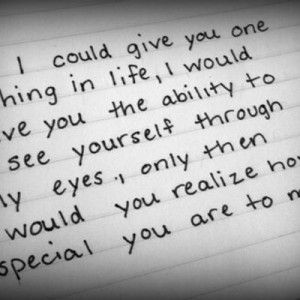 I could give you one
hing in life, I would
ve you the ability to
see yourself through
ly eyes, only then
would you realize ho
special you are to m